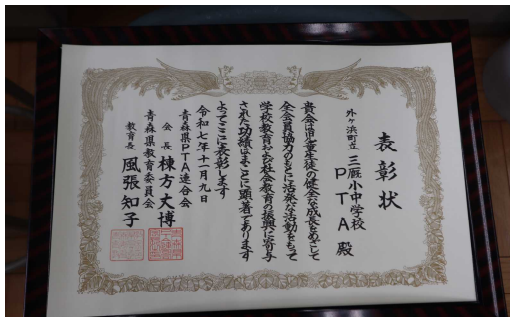 表彰状
外ヶ浜町立 三厩小中学校
PTA 殿
貴会は児童生徒の健全な成長をめざして
全会員協力のもとに活発な活動をもって
学校教育および社会教育の振興に寄与
された功績はまことに顕著であります
よってここに表彰します
令和七年十一月九日
青森県PTA連合会
会長 棟方丈博
青森県教育委員会
教育長 風張知子